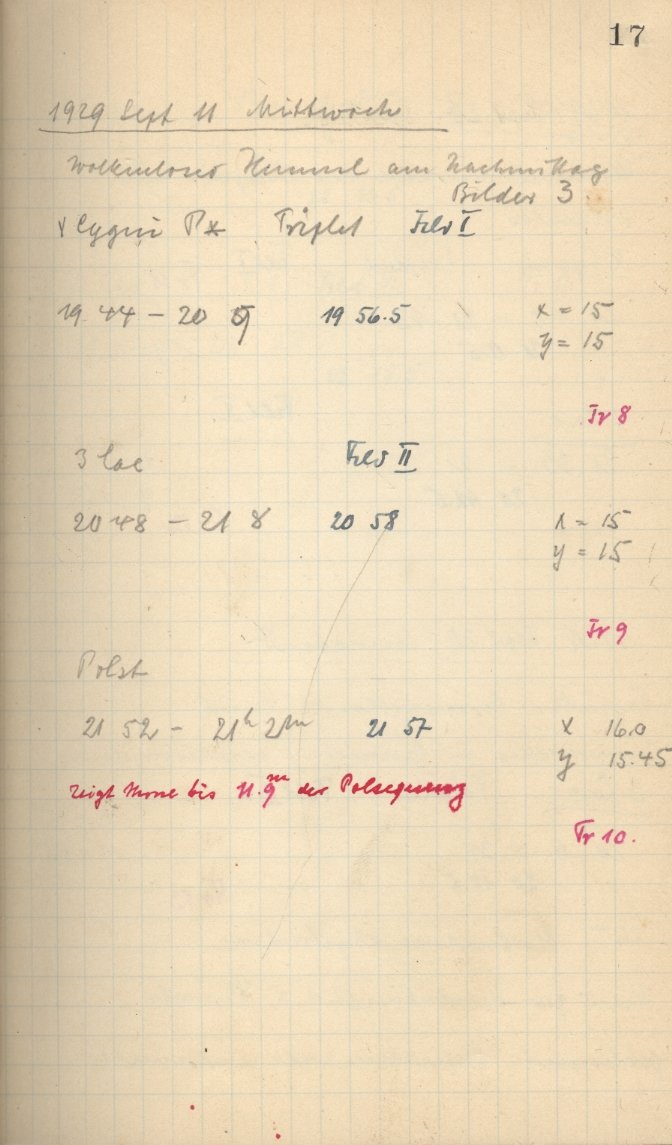 17
1929 Sept 11 Mittwoch
Wolkenloser Himmel am Nachmittag
Bilder 3
γ Cygni P* Triplet Feld I
19 44 – 20 9 19 56.5 x = 15
y = 15
Tr 8
3 Lac Feld II
20 48 – 21 8 20 58 x = 15
y = 15
Tr 9
Polst
21 52 – 21h 2m 21 57 x 16.0
y 15.45
zeigt Sterne bis 11.9m der Polsequenz
Tr 10.